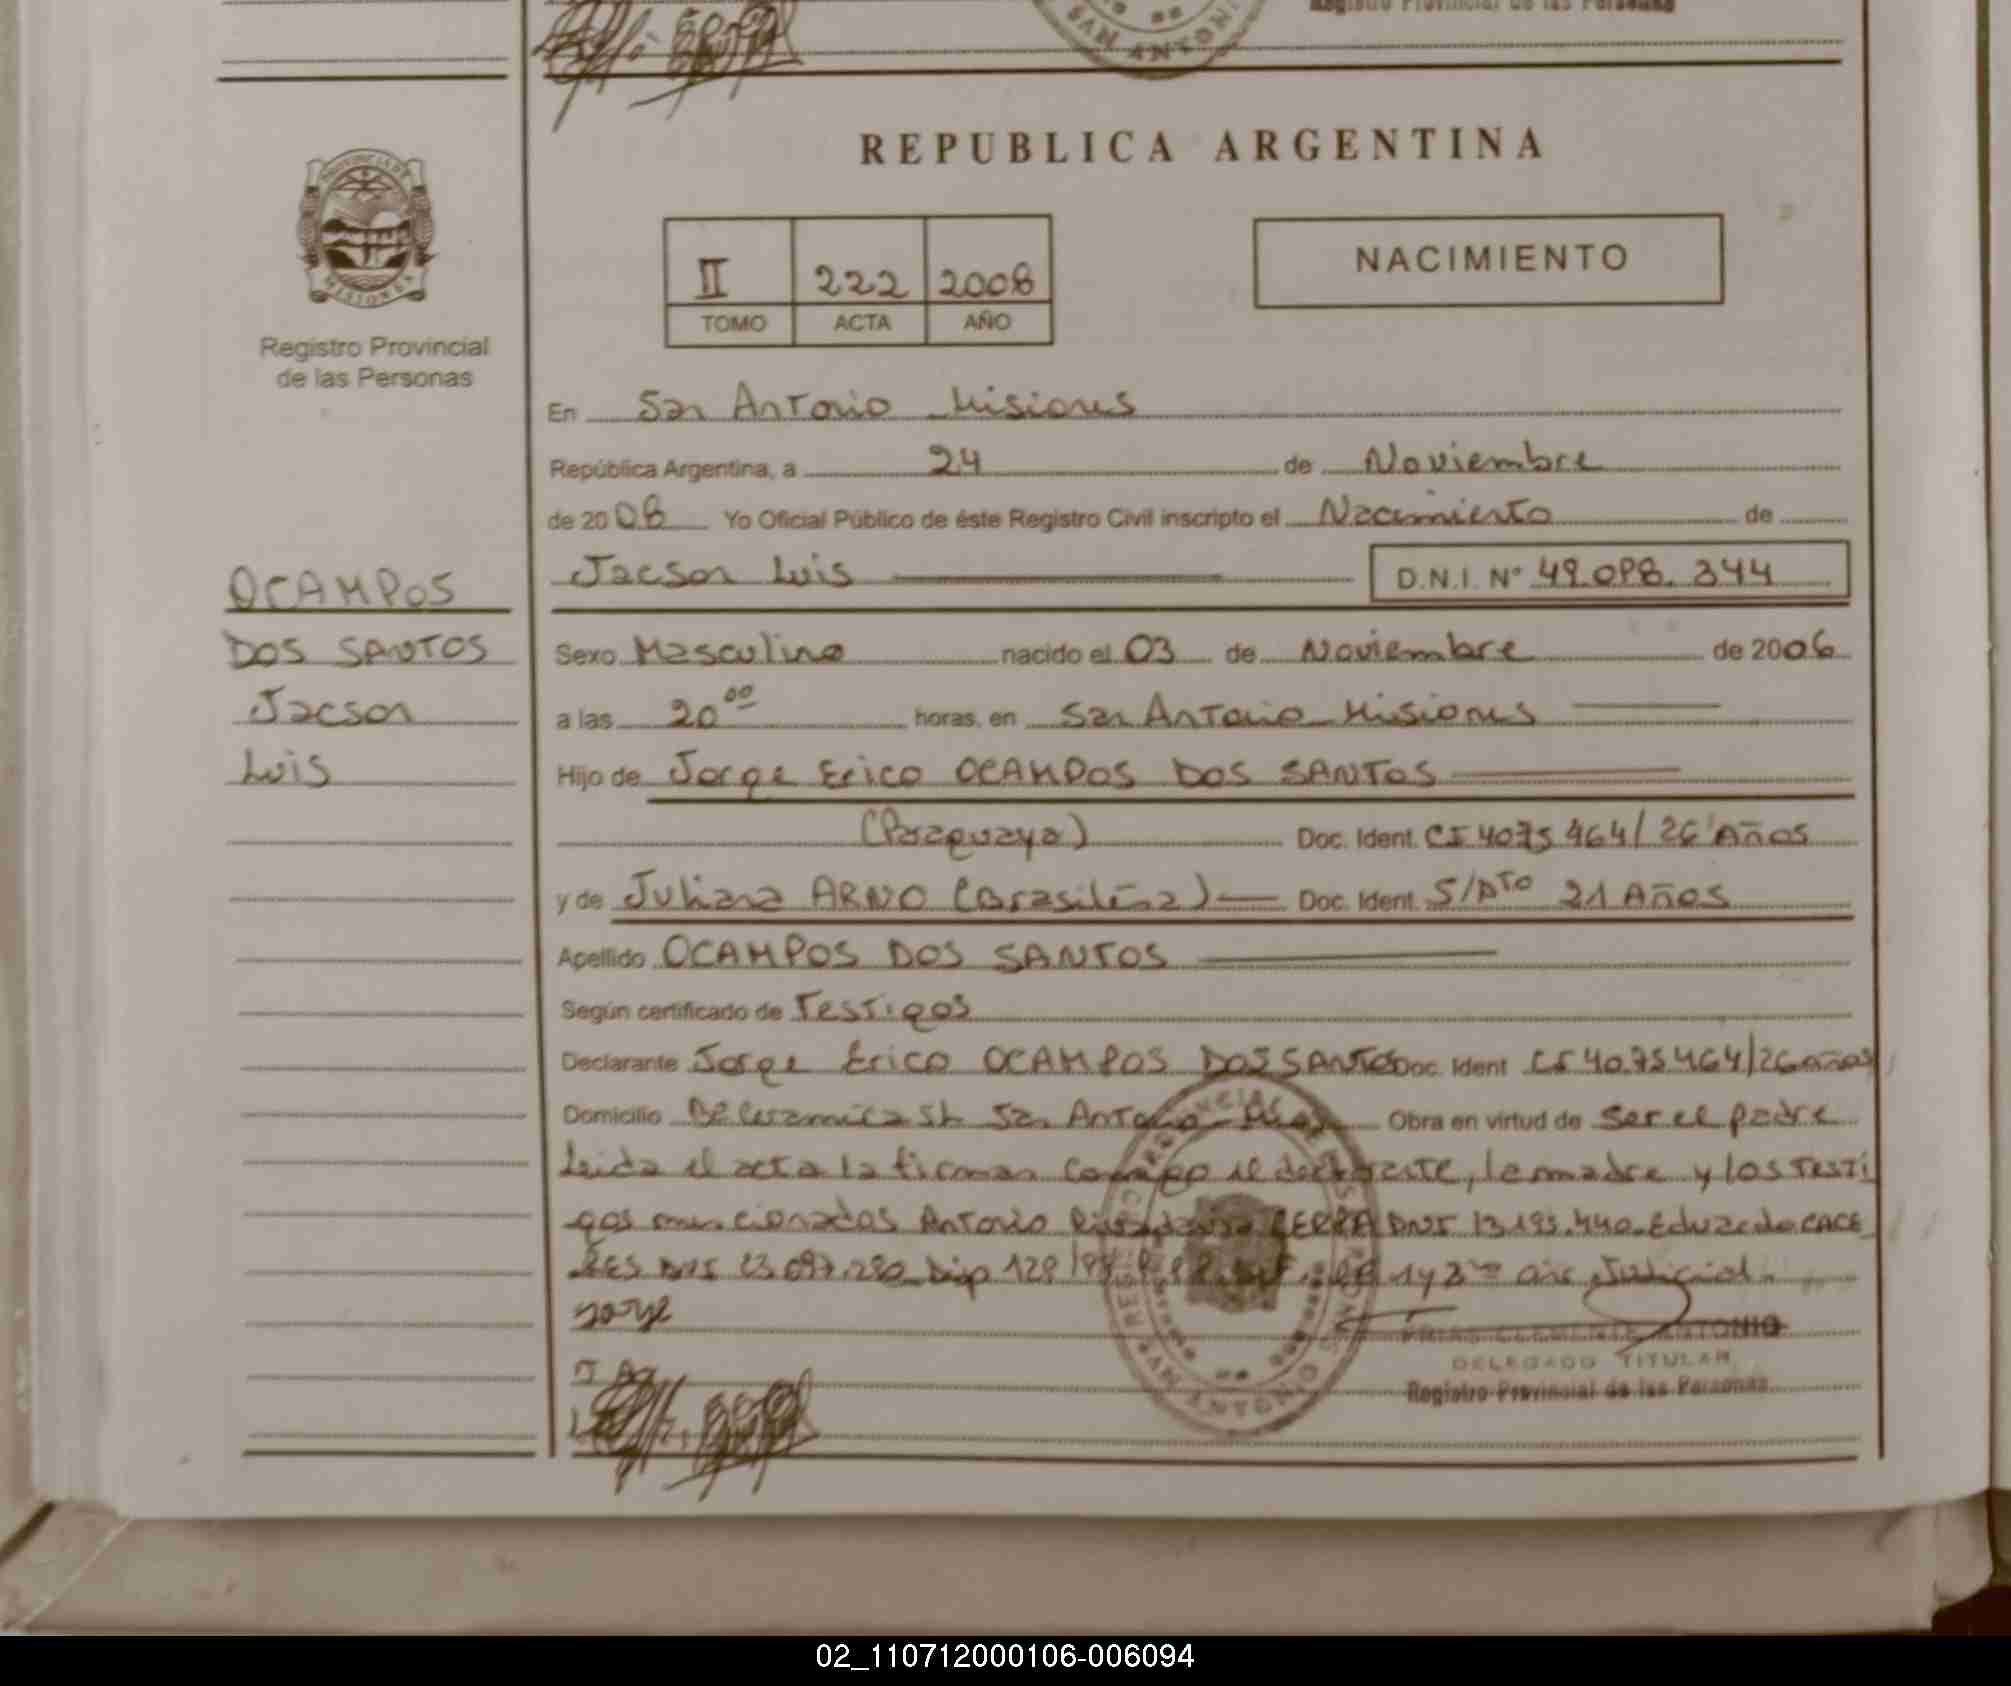 Registro Provincial de las Personas
SAN ANTONIO
PROVINCIA DE
MISIONES
Registro Provincial
de las Personas
REPUBLICA ARGENTINA
II 222 2008
TOMO ACTA AÑO
NACIMIENTO
En San Antonio Misiones
República Argentina, a 24 de Noviembre
de 2008 Yo Oficial Público de éste Registro Civil inscripto el Nacimiento de
Jacson Luis D.N.I. Nº 49.098.344
OCAMPOS
DOS SANTOS
Jacson
Luis
Sexo Masculino nacido el 03 de Noviembre de 2006
a las 20 00 horas, en San Antonio Misiones
Hijo de Jorge Erico OCAMPOS DOS SANTOS
(Paraguayo) Doc. Ident. CI 4075464/26 Años
y de Juliana ARNO (Brasileña) Doc. Ident. S/Dto 21 Años
Apellido OCAMPOS DOS SANTOS
Según certificado de Testigos
Declarante Jorge Erico OCAMPOS DOS SANTOS Doc. Ident CI 4075464/26 años
Domicilio San Antonio Obra en virtud de ser el padre
Leida el acta la firman conmigo el declarante, la madre y los testi
gos mencionados Antonio DNI 13.195.440. Eduardo CACE
RES DNI Disp Judicial.
Jorge
FRIAS CLEMENTE ANTONIO
DELEGADO TITULAR
Registro Provincial de las Personas
SAN ANTONIO
02_110712000106-006094